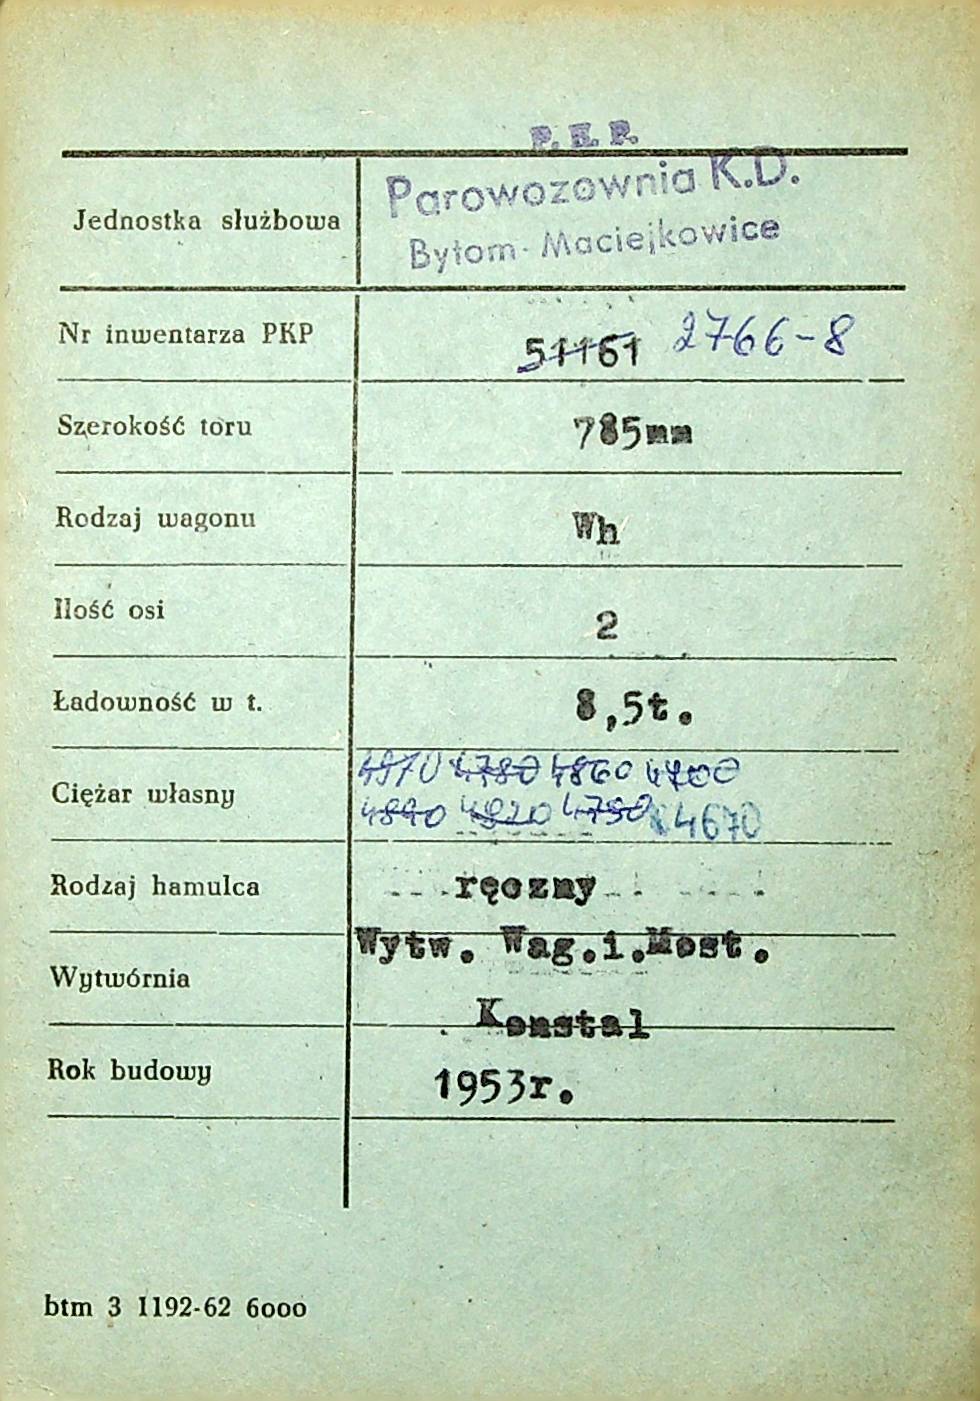 P. K. P.
Parowozownia K.D.
Jednostka służbowa
Bytom-Maciejkowice
Nr inwentarza PKP 51161 2766-8
Szerokość toru 785mm
Rodzaj wagonu Wh
Ilość osi 2
Ładowność w t. 8,5t.
4970 4780 4860 4700
Ciężar własny
4890 4820 4790 4670
Rodzaj hamulca ręczny
Wytw. Wag.i.Most.
Wytwórnia
Konstal
Rok budowy 1953r.
btm 3 1192-62 6000